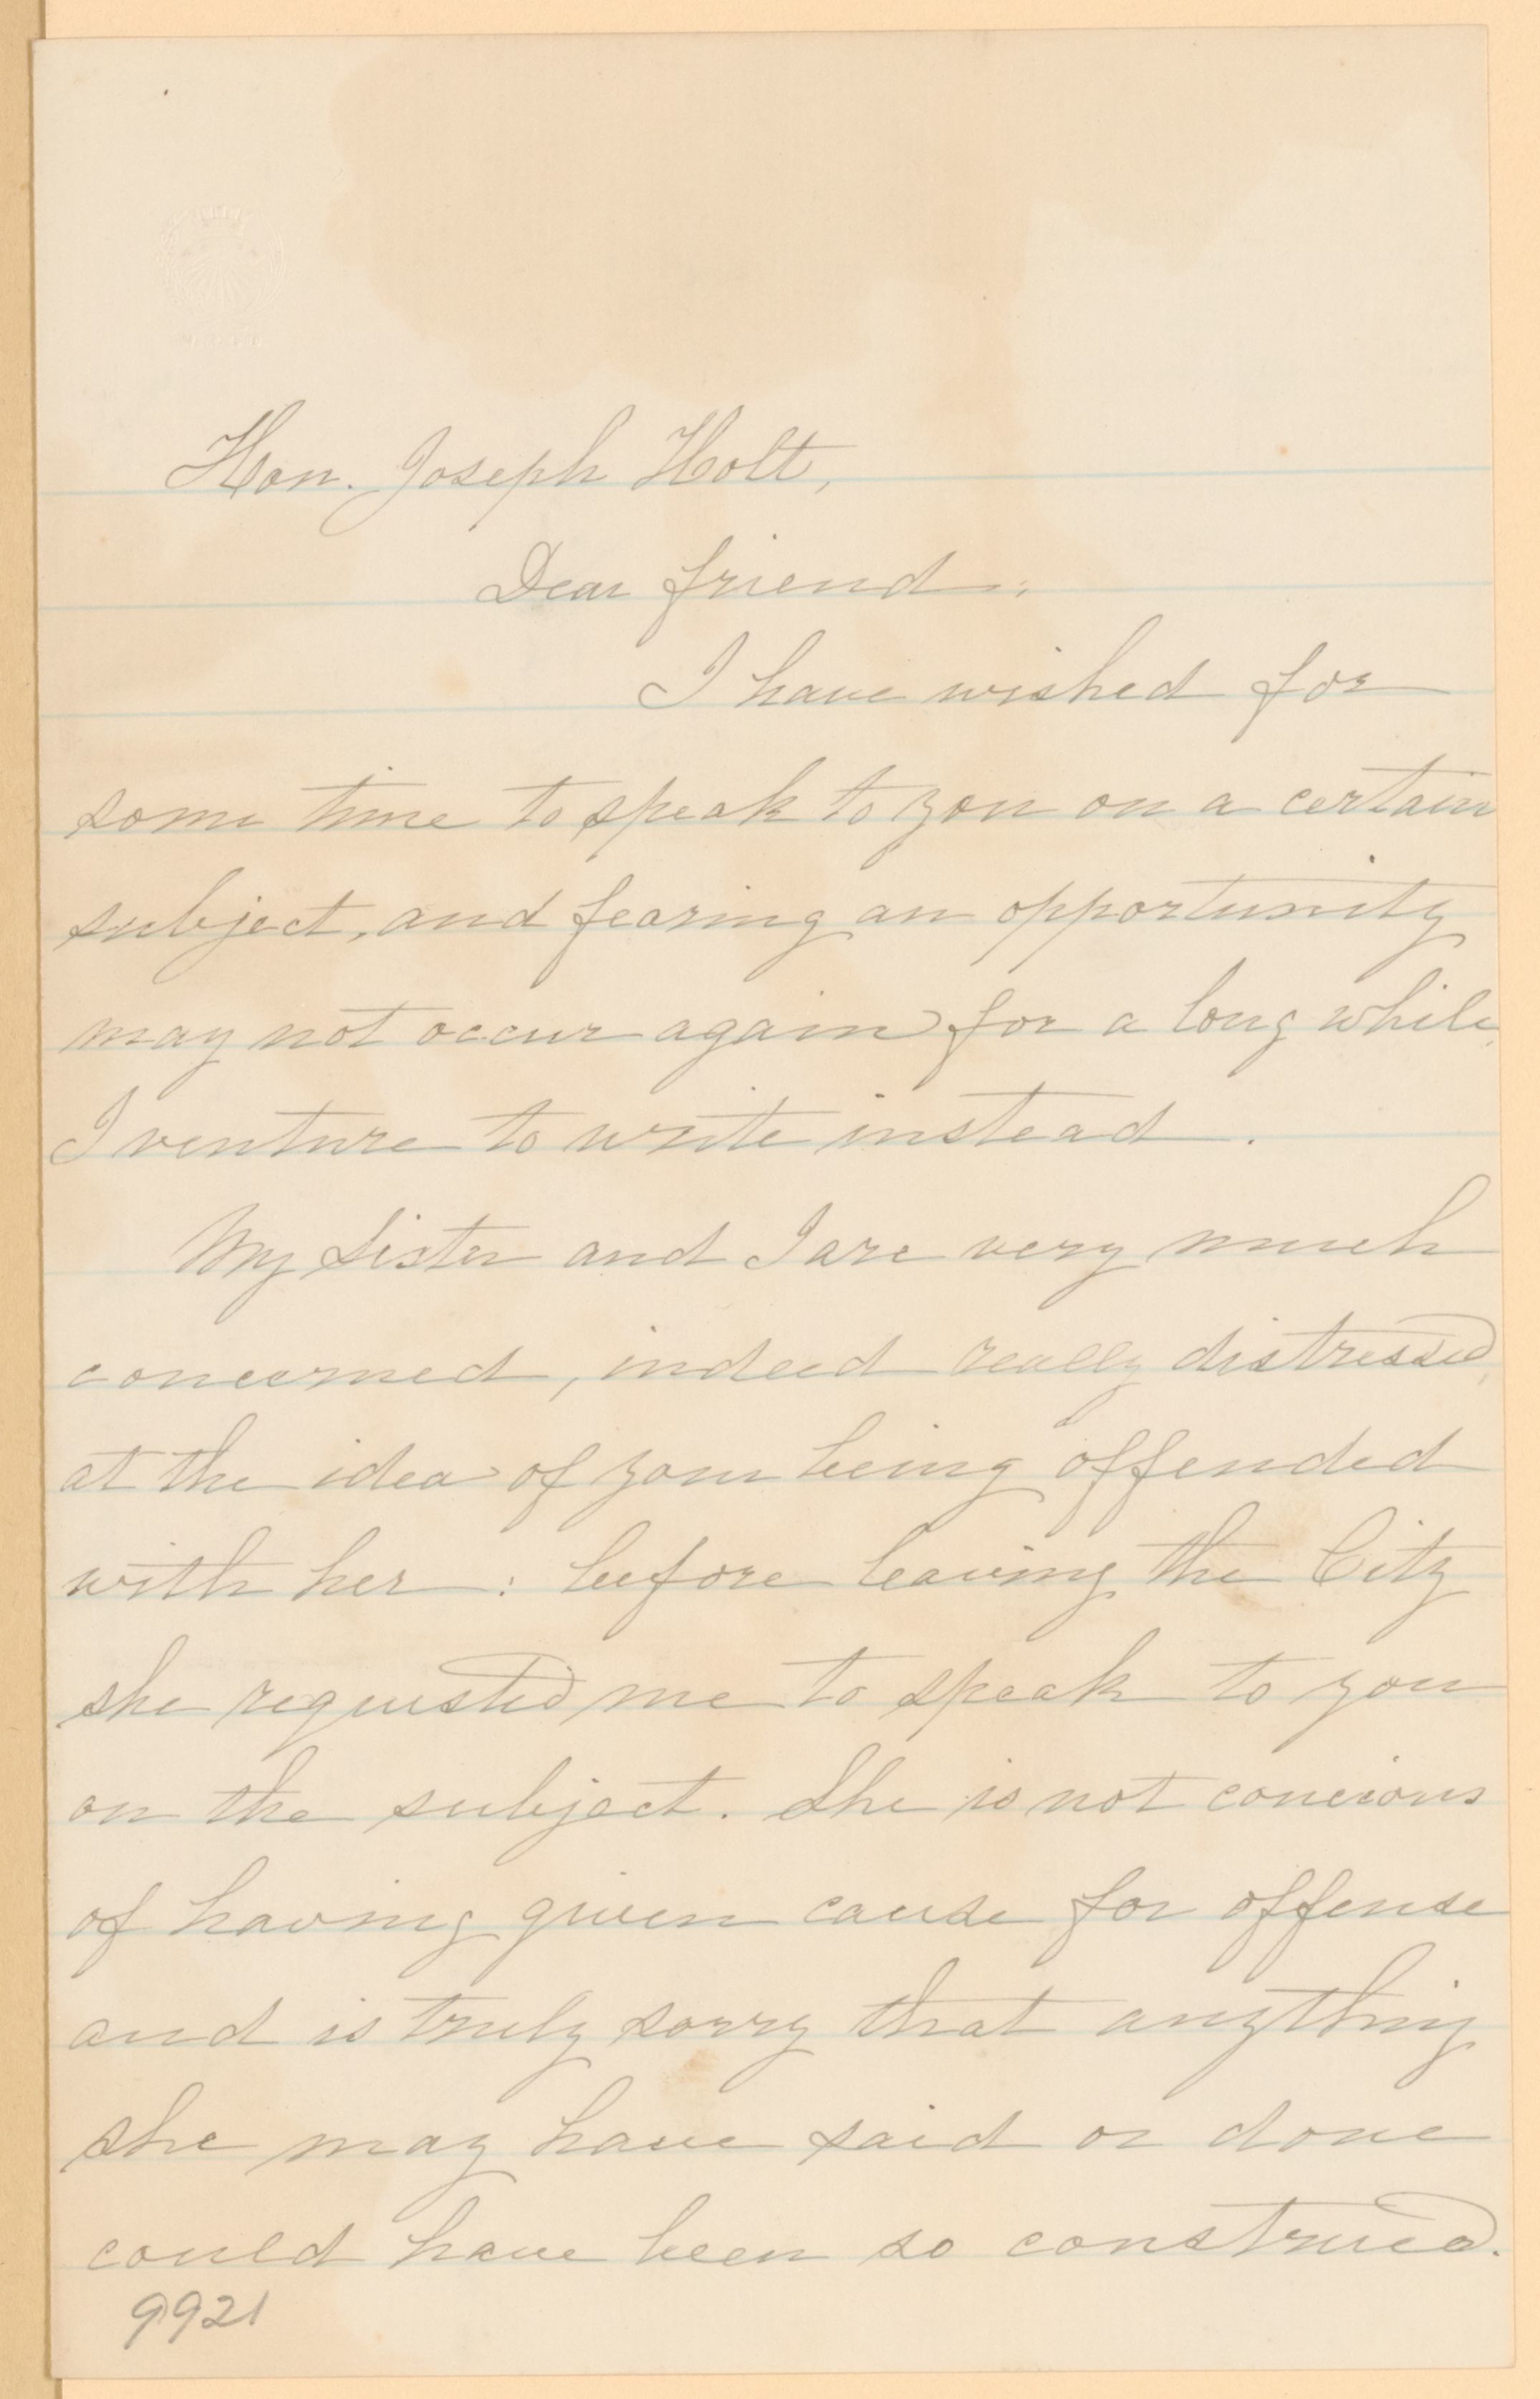 Hon. Joseph Holt,
Dear friend;
I have wished for
some time to speak to you on a certain
subject, and fearing an opportunity
may not occur again for a long while,
I venture to write instead.
My Sister and I are very much
concerned, indeed really distressed,
at the idea of your being offended
with her: before leaving the City
she requested me to speak to you
on the subject. She is not concious
of having given cause for offense
and is truly sorry that anything
she may have said or done
could have been so construed.
9921